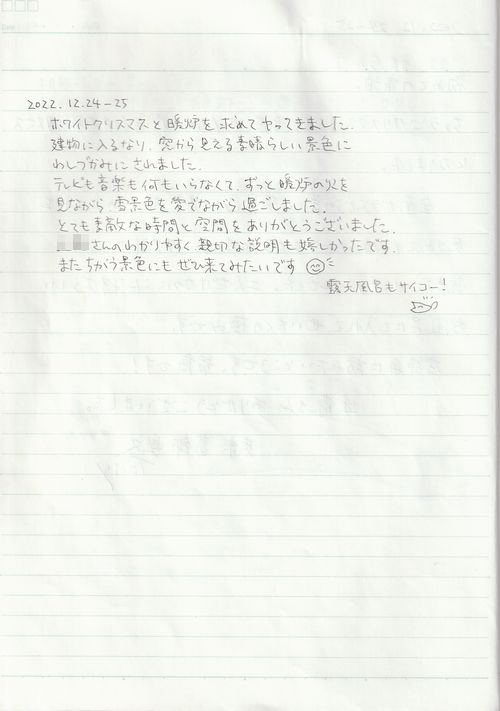 2022.12.24-25
ホワイトクリスマスと暖炉を求めてやってきました。
建物に入るなり、窓から見える素晴らしい景色に
わしづかみにされました。
テレビも音楽も何もいらなくて、ずっと暖炉の火を
見ながら、雪景色を愛でながら過ごしました。
とても素敵な時間と空間をありがとうございました。
さんのわかりやすく親切な説明も嬉しかったです。
またちがう景色にもぜひ来てみたいです
露天風呂もサイコー!